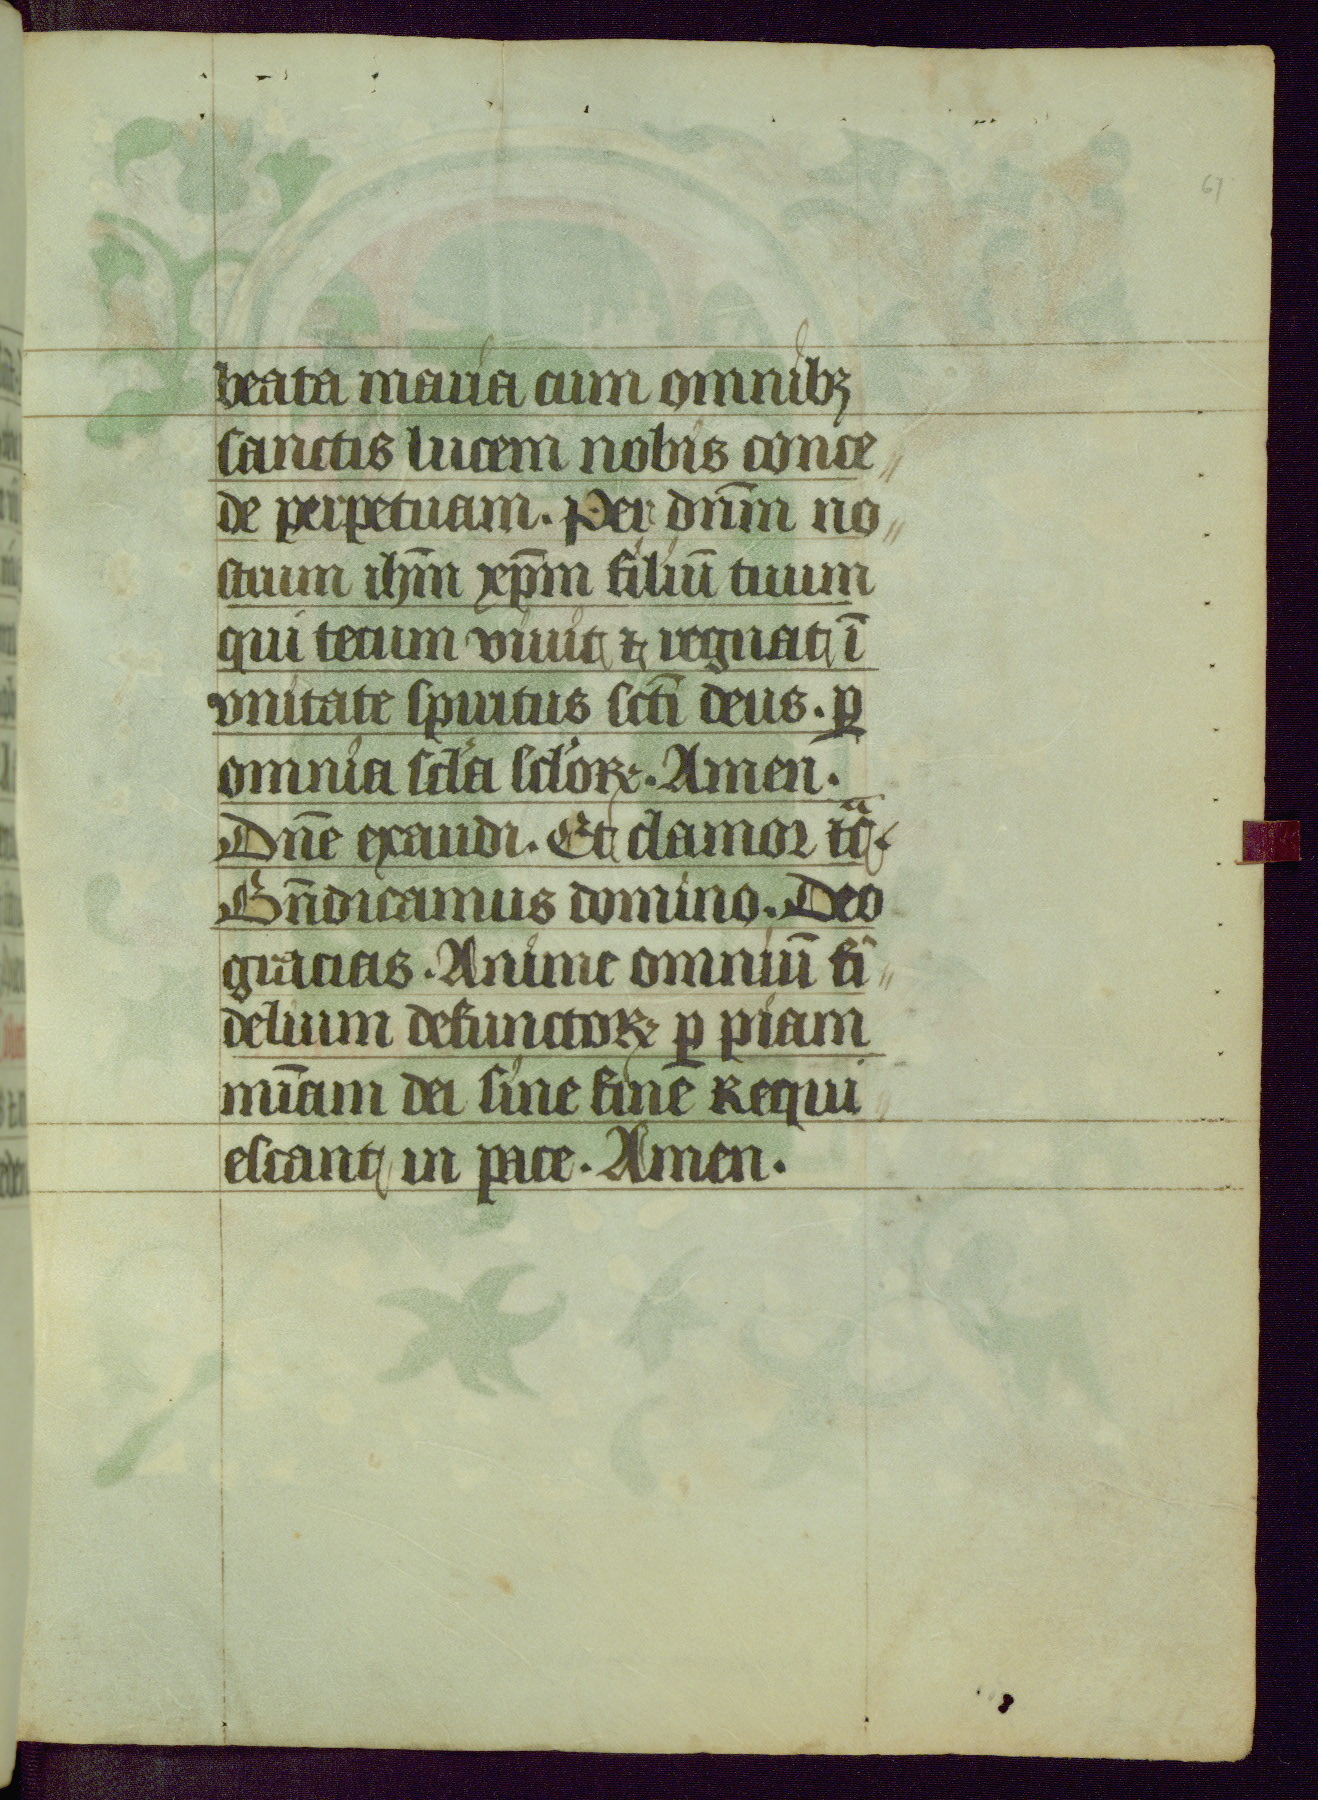 67
beata maria cum omnibꝫ
sanctis lucem nobis conce〃
de perpetuam. Per dn̄m no〃
strum ihm̄ xp̄m filiū tuum
qui tecum viuit ⁊ regnat ī
vnitate spiritus scti̅ deus. ꝑ
omnia scl'a scl'oꝝ. Amen.
Dn̄e exaudi. Et clamor
Bn̄dicamus domino. Deo
gracias. Anime omniū fi〃
delium defunctoꝝ ꝑ piam
mīam dei sine fine Requi
escant in pace. Amen.